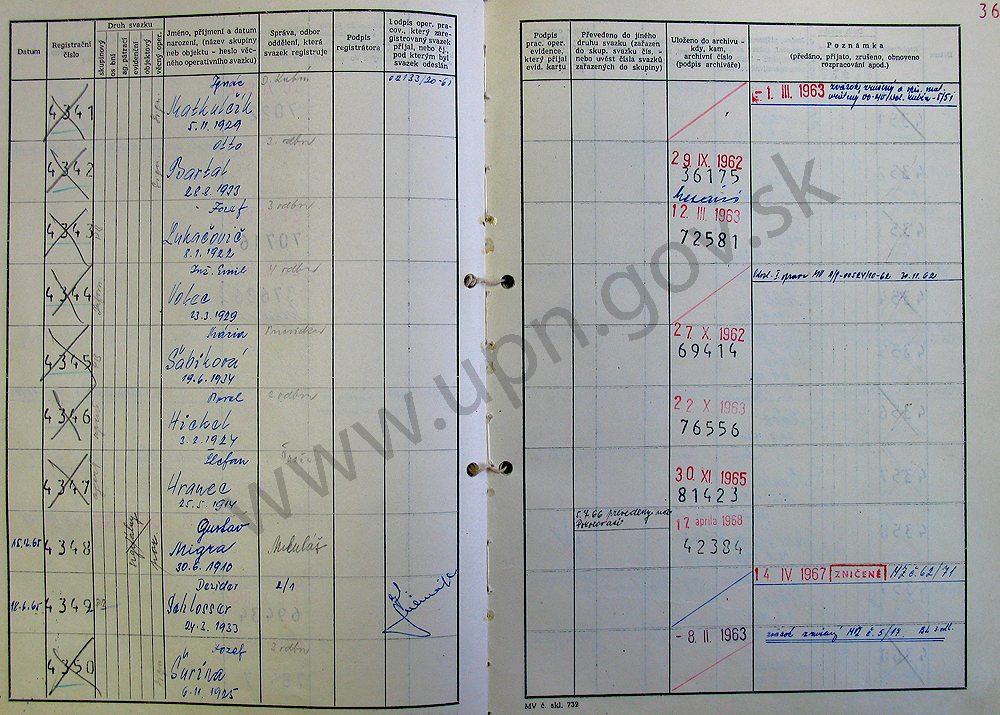 36
Datum
Registrační číslo
Druh svazku
skupinový
os bní
ag. pátrací
evidenční
objektový
věčný oper.
Jméno, příjmení a datum
narození, (název skupiny
neb objektu - heslo věč-
ného operativního svazku)
Správa, odbor
oddělení, která
svazek registruje
Podpis
registrátora
Podpis oper. pra-
cov., který zare-
gistrovaný svazek
přijal, nebo čí.
pod kterým byl
svazek odeslán
Podpis
prac. oper.
evidence,
který přijal
evid. kartu
Převedeno do jiného
druhu svazku (zařazen
do skup. svazku čís. -
nebo uvést čísla svazků
zařazených do skupiny)
Uloženo do archivu -
kdy, kam,
archivní číslo
(podpis archiváře)
Poznámka
(předáno, přijato, zrušeno, obnoveno
rozpracování apod.)
4341
Ignác
5.11.1929
D. Kubín
02133/20-61
- 1. III. 1963
4342
Otto
Bartal
28.8.1933
3. odbor
29. IX. 1962
36175
4343
Jozef
Lukačovič
8.1.1922
3 odbor
12. III. 1963
72581
4344
Inž. Emil
Votec
23.3.1929
4 odbor
30.11.62
4345
Mária
Šabíková
19.6.1934
Prievidza
27. X. 1962
69414
4346
Pavel
Hickel
3.2.1924
2 odbor
22 X 1963
76556
4347
Štefan
Hranec
25.5.1914
30. XI. 1965
81423
15.12.65
4348
Gustav
Migra
30.6.1910
Mikuláš
5.7.66 prevedený na
17 apríla 1968
42384
18.6.65
4349
Dezider
Schlosser
24.2.1933
2/1
14 IV. 1967 ZNIČENÉ MZ č 62/71
4350
Jozef
Šurina
6.11.1925
2 odbor
- 8. II. 1963
zväzok zničený MZ č. 5/17
MV č. skl. 732
www.upn.gov.sk